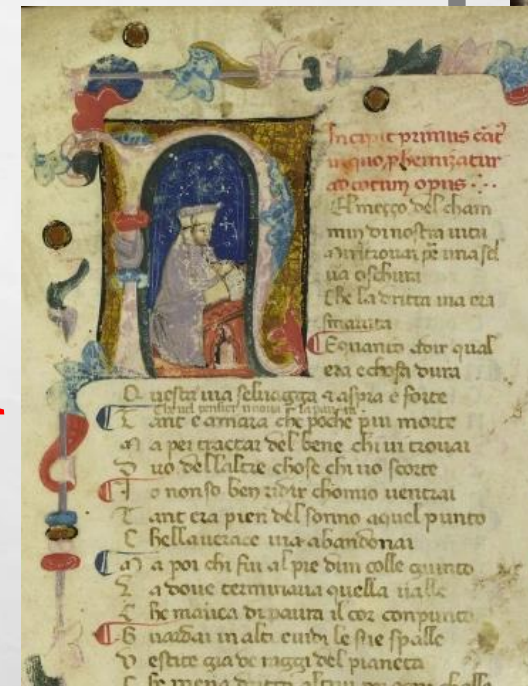 Incipit primus cāt
in quo prhemizatur
ad totum opus
El meçço del cham
min di nostra uita
Mi ritrouai per una sel
ua oschura
Che la dritta uia era
smarita
Equanto a dir qual
era e chosa dura
Questa uia seluaggia & aspra e forte
Che nel pensier rinoua la paura
Tant e amara che poche piu morte
Ma per tractar del bene chi ui trouai
Duo dellaltre chose chi uo scorte
Io non so ben ridir chomio uentrai
Tant era pien del sonno aquel punto
Chella uerace uia abandonai
Ma poi chi fui al pie dim colle guinto
La doue terminaua quella ualle
Che mauca di paura il cor conpunto
Guardai in alti euidi le sue spalle
Vestite gia de raggi del pianeta
Che mena dritto altrui per ogni challe